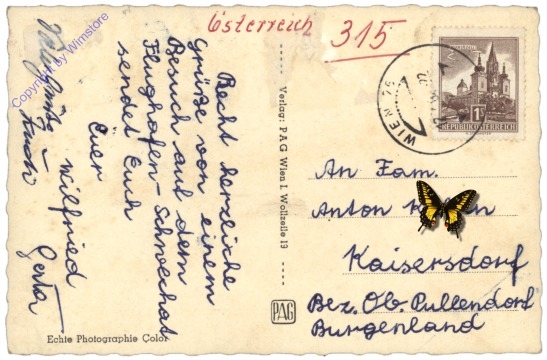 Österreich
315
Recht herzliche
Grüße von einem
Besuch auf dem
Flughafen-Schwechat
sendet Euch
Euer
Wilfried
Gerta
Verlag: PAG Wien I. Wollzeile 13
PAG
Echte Photographie Color
WIEN
1
REPUBLIK ÖSTERREICH
An Fam.
Anton
Kaisersdorf
Bez. Ob. Pullendorf
Burgenland
Copyright by Wimstore